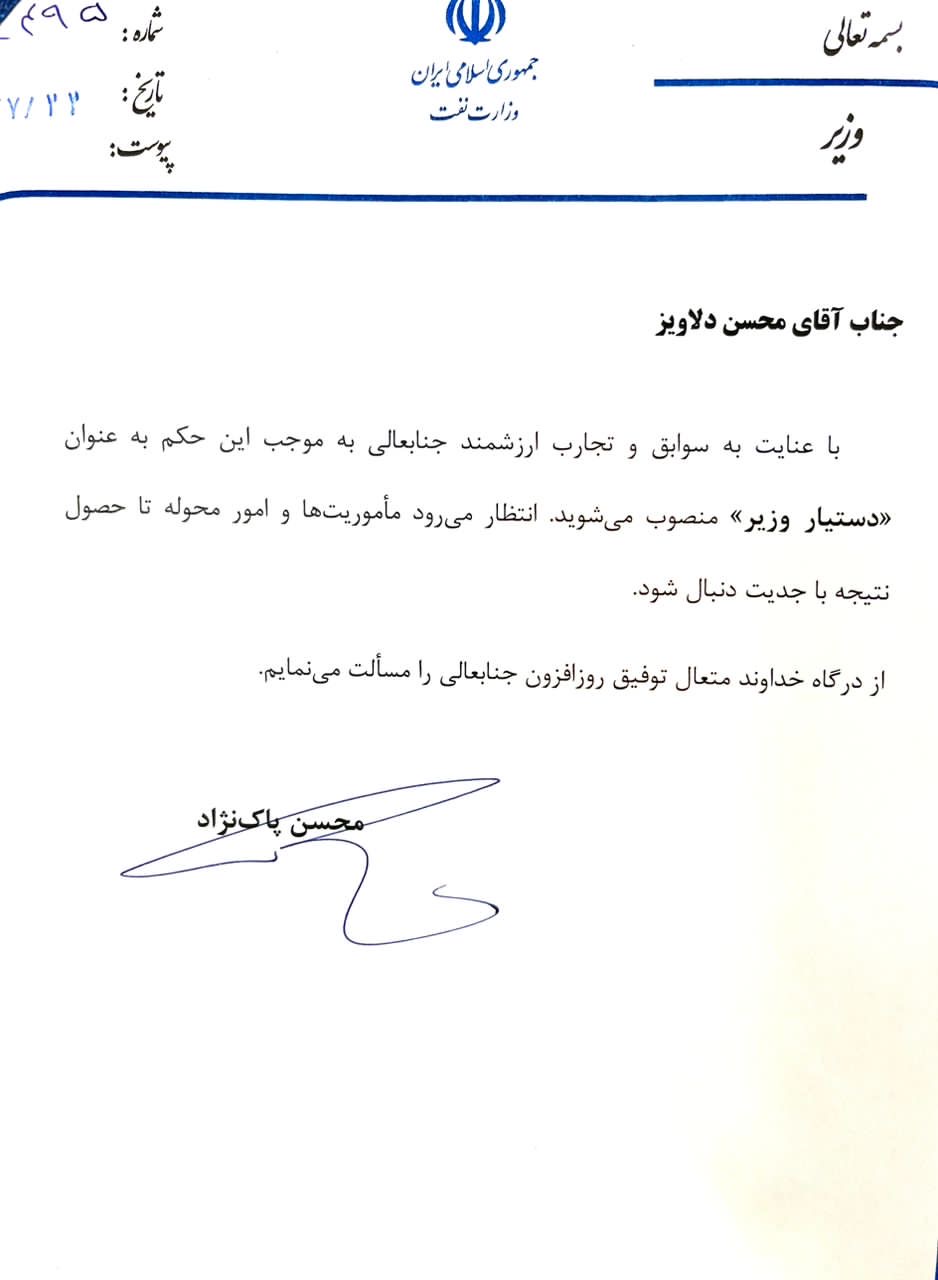 بسمه تعالی
وزیر
جمهوری اسلامی ایران
وزارت نفت
شماره :
تاریخ : ۷/۲۲
پیوست:
جناب آقای محسن دلاویز
با عنایت به سوابق و تجارب ارزشمند جنابعالی به موجب این حکم به عنوان
«دستیار وزیر» منصوب می‌شوید. انتظار می‌رود مأموریت‌ها و امور محوله تا حصول
نتیجه با جدیت دنبال شود.
از درگاه خداوند متعال توفیق روزافزون جنابعالی را مسألت می‌نمایم.
محسن پاک‌نژاد